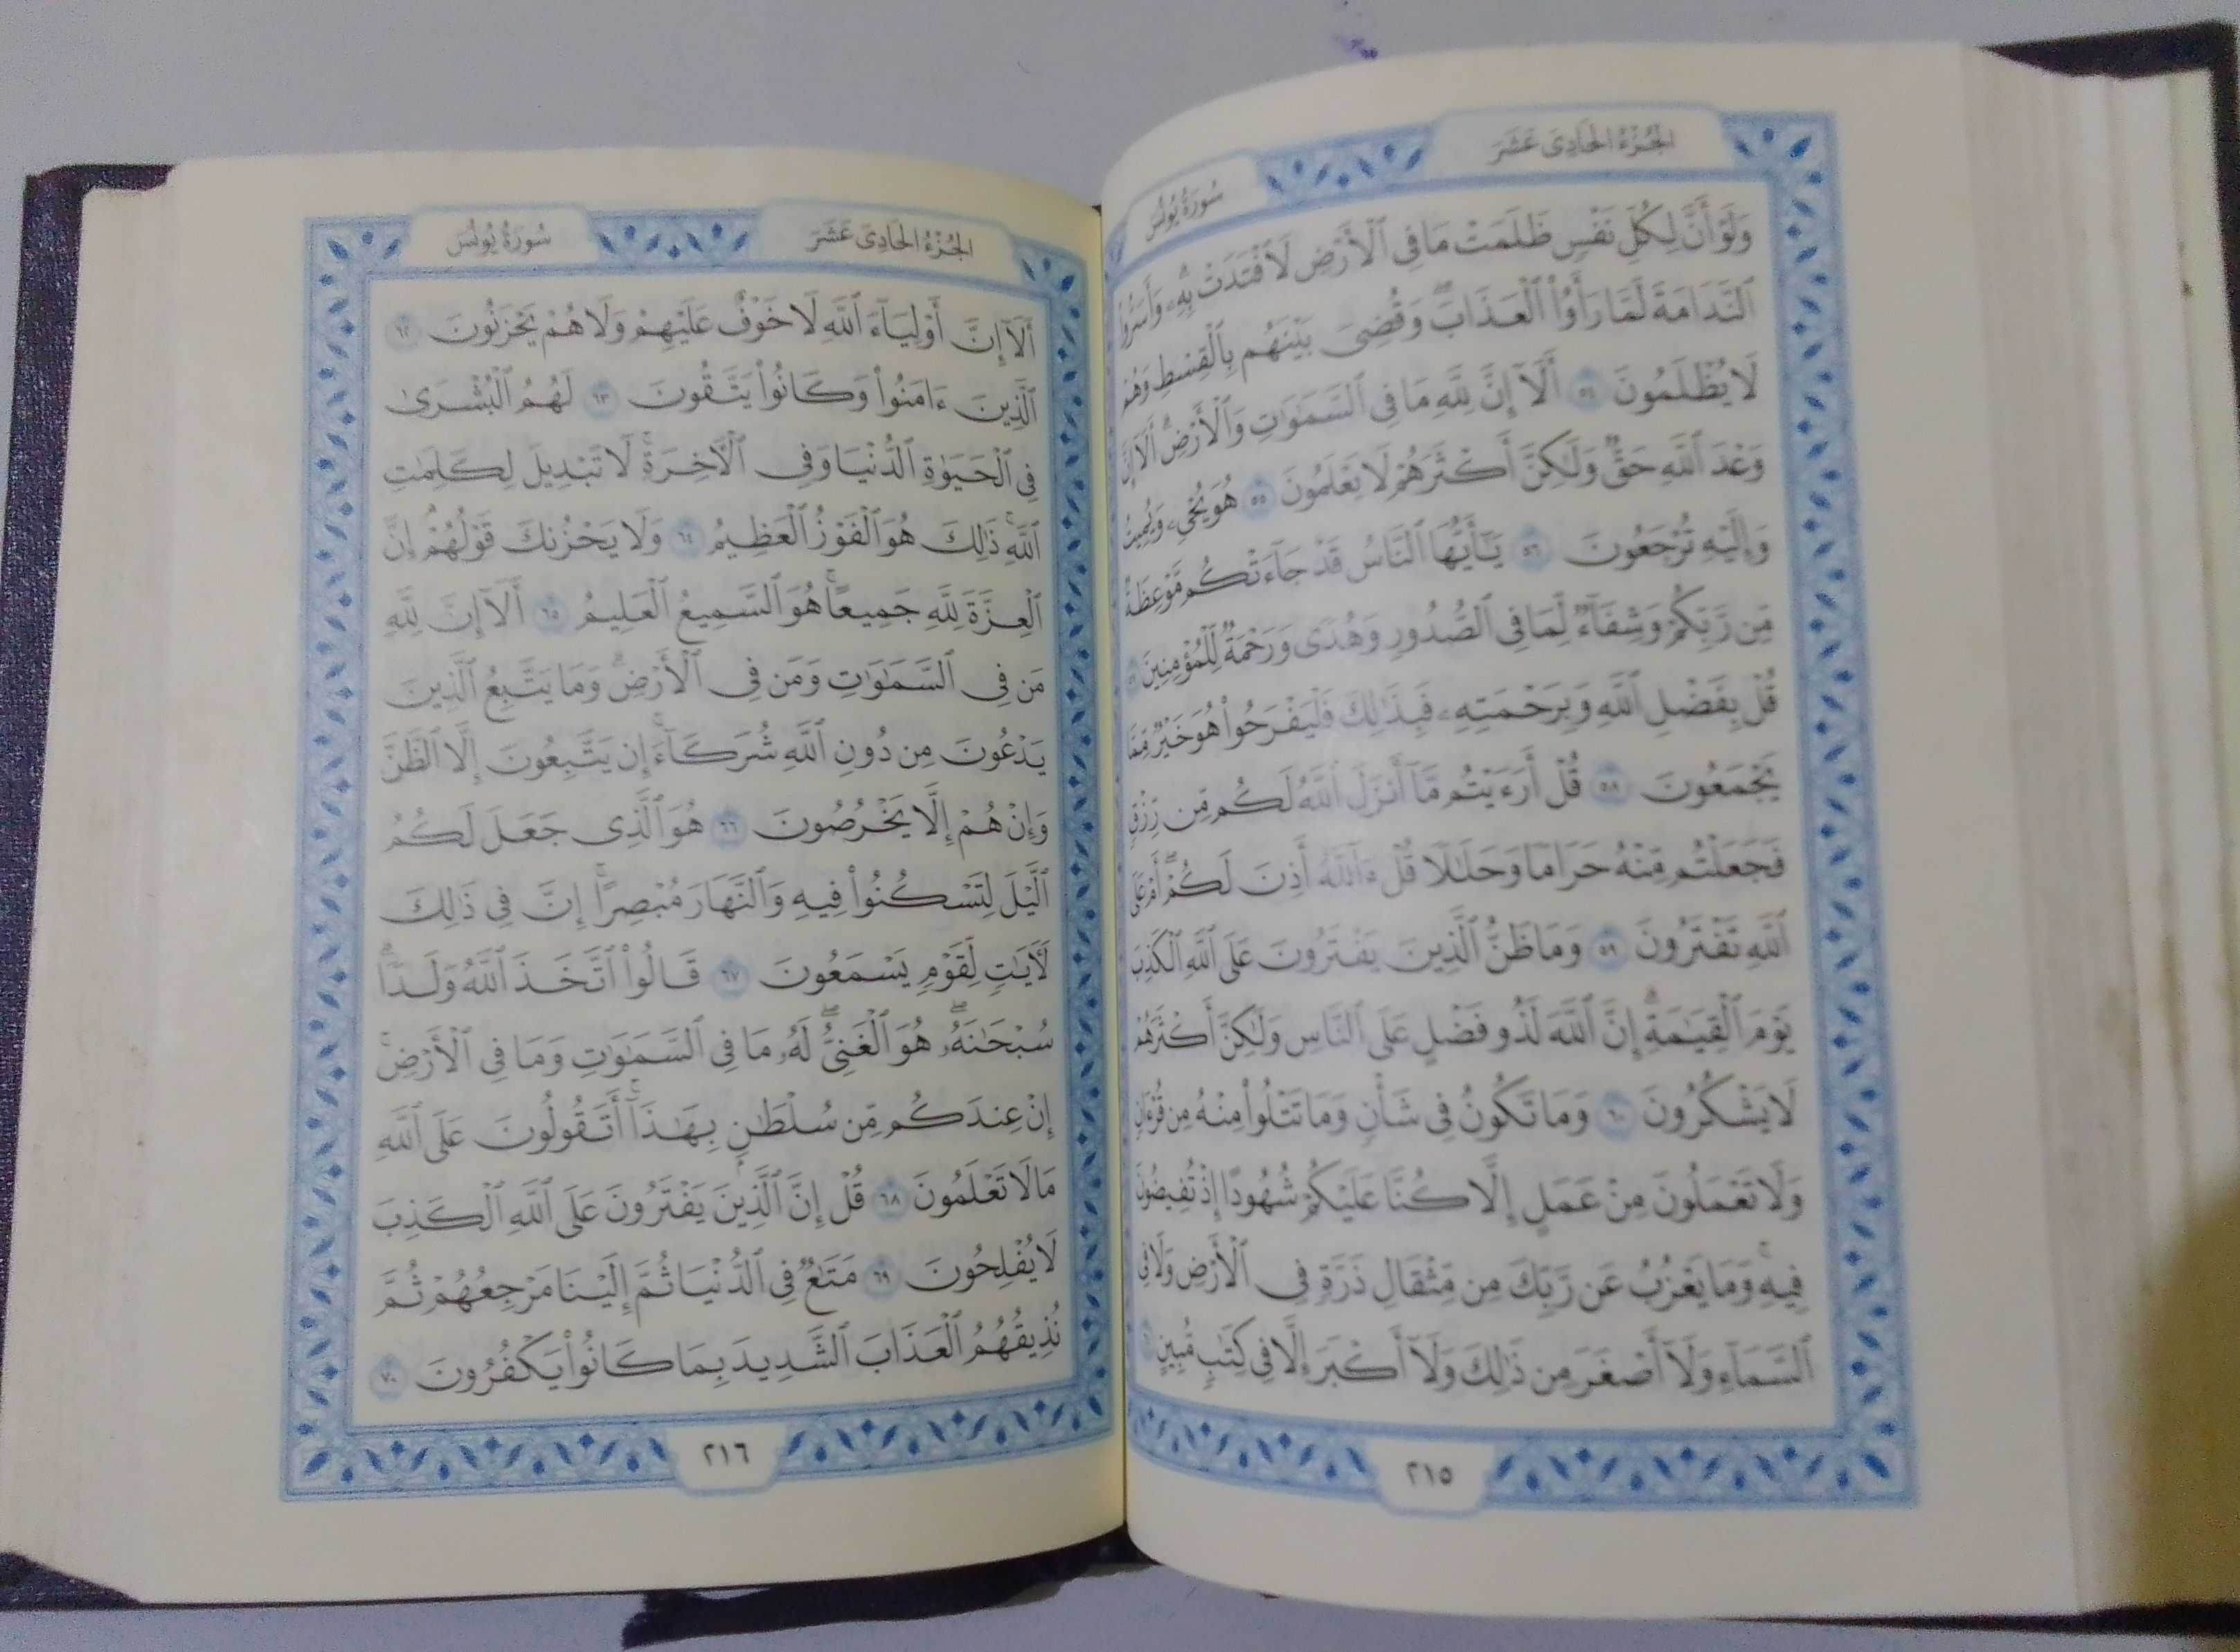 الجُزْءُ الحَادِىَ عَشَرَ
سُورَةُ يُونُسَ
وَلَوْ أَنَّ لِكُلِّ نَفْسٍ ظَلَمَتْ مَا فِى ٱلْأَرْضِ لَٱفْتَدَتْ بِهِۦۗ وَأَسَرُّوا۟
ٱلنَّدَامَةَ لَمَّا رَأَوُا۟ ٱلْعَذَابَۖ وَقُضِىَ بَيْنَهُم بِٱلْقِسْطِ وَهُمْ
لَا يُظْلَمُونَ ٥٤ أَلَآ إِنَّ لِلَّهِ مَا فِى ٱلسَّمَٰوَٰتِ وَٱلْأَرْضِۗ أَلَآ إِنَّ
وَعْدَ ٱللَّهِ حَقٌّ وَلَٰكِنَّ أَكْثَرَهُمْ لَا يَعْلَمُونَ ٥٥ هُوَ يُحْىِۦ وَيُمِيتُ
وَإِلَيْهِ تُرْجَعُونَ ٥٦ يَٰٓأَيُّهَا ٱلنَّاسُ قَدْ جَآءَتْكُم مَّوْعِظَةٌ
مِّن رَّبِّكُمْ وَشِفَآءٌ لِّمَا فِى ٱلصُّدُورِ وَهُدًى وَرَحْمَةٌ لِّلْمُؤْمِنِينَ
قُلْ بِفَضْلِ ٱللَّهِ وَبِرَحْمَتِهِۦ فَبِذَٰلِكَ فَلْيَفْرَحُوا۟ هُوَ خَيْرٌ مِّمَّا
يَجْمَعُونَ ٥٨ قُلْ أَرَءَيْتُم مَّآ أَنزَلَ ٱللَّهُ لَكُم مِّن رِّزْقٍ
فَجَعَلْتُم مِّنْهُ حَرَامًا وَحَلَٰلًا قُلْ ءَآللَّهُ أَذِنَ لَكُمْۖ أَمْ عَلَى
ٱللَّهِ تَفْتَرُونَ ٥٩ وَمَا ظَنُّ ٱلَّذِينَ يَفْتَرُونَ عَلَى ٱللَّهِ ٱلْكَذِبَ
يَوْمَ ٱلْقِيَٰمَةِۗ إِنَّ ٱللَّهَ لَذُو فَضْلٍ عَلَى ٱلنَّاسِ وَلَٰكِنَّ أَكْثَرَهُمْ
لَا يَشْكُرُونَ ٦٠ وَمَا تَكُونُ فِى شَأْنٍ وَمَا تَتْلُوا۟ مِنْهُ مِن قُرْءَانٍ
وَلَا تَعْمَلُونَ مِنْ عَمَلٍ إِلَّا كُنَّا عَلَيْكُمْ شُهُودًا إِذْ تُفِيضُونَ
فِيهِۚ وَمَا يَعْزُبُ عَن رَّبِّكَ مِن مِّثْقَالِ ذَرَّةٍ فِى ٱلْأَرْضِ وَلَا فِى
ٱلسَّمَآءِ وَلَآ أَصْغَرَ مِن ذَٰلِكَ وَلَآ أَكْبَرَ إِلَّا فِى كِتَٰبٍ مُّبِينٍ
٢١٥
الجُزْءُ الحَادِىَ عَشَرَ
سُورَةُ يُونُسَ
أَلَآ إِنَّ أَوْلِيَآءَ ٱللَّهِ لَا خَوْفٌ عَلَيْهِمْ وَلَا هُمْ يَحْزَنُونَ ٦٢
ٱلَّذِينَ ءَامَنُوا۟ وَكَانُوا۟ يَتَّقُونَ ٦٣ لَهُمُ ٱلْبُشْرَىٰ
فِى ٱلْحَيَوٰةِ ٱلدُّنْيَا وَفِى ٱلْءَاخِرَةِۚ لَا تَبْدِيلَ لِكَلِمَٰتِ
ٱللَّهِۚ ذَٰلِكَ هُوَ ٱلْفَوْزُ ٱلْعَظِيمُ ٦٤ وَلَا يَحْزُنكَ قَوْلُهُمْۘ إِنَّ
ٱلْعِزَّةَ لِلَّهِ جَمِيعًاۚ هُوَ ٱلسَّمِيعُ ٱلْعَلِيمُ ٦٥ أَلَآ إِنَّ لِلَّهِ
مَن فِى ٱلسَّمَٰوَٰتِ وَمَن فِى ٱلْأَرْضِۗ وَمَا يَتَّبِعُ ٱلَّذِينَ
يَدْعُونَ مِن دُونِ ٱللَّهِ شُرَكَآءَۚ إِن يَتَّبِعُونَ إِلَّا ٱلظَّنَّ
وَإِنْ هُمْ إِلَّا يَخْرُصُونَ ٦٦ هُوَ ٱلَّذِى جَعَلَ لَكُمُ
ٱلَّيْلَ لِتَسْكُنُوا۟ فِيهِ وَٱلنَّهَارَ مُبْصِرًاۚ إِنَّ فِى ذَٰلِكَ
لَءَايَٰتٍ لِّقَوْمٍ يَسْمَعُونَ ٦٧ قَالُوا۟ ٱتَّخَذَ ٱللَّهُ وَلَدًاۗ
سُبْحَٰنَهُۥۖ هُوَ ٱلْغَنِىُّۖ لَهُۥ مَا فِى ٱلسَّمَٰوَٰتِ وَمَا فِى ٱلْأَرْضِۚ
إِنْ عِندَكُم مِّن سُلْطَٰنٍۭ بِهَٰذَآۚ أَتَقُولُونَ عَلَى ٱللَّهِ
مَا لَا تَعْلَمُونَ ٦٨ قُلْ إِنَّ ٱلَّذِينَ يَفْتَرُونَ عَلَى ٱللَّهِ ٱلْكَذِبَ
لَا يُفْلِحُونَ ٦٩ مَتَٰعٌ فِى ٱلدُّنْيَا ثُمَّ إِلَيْنَا مَرْجِعُهُمْ ثُمَّ
نُذِيقُهُمُ ٱلْعَذَابَ ٱلشَّدِيدَ بِمَا كَانُوا۟ يَكْفُرُونَ ٧٠
٢١٦